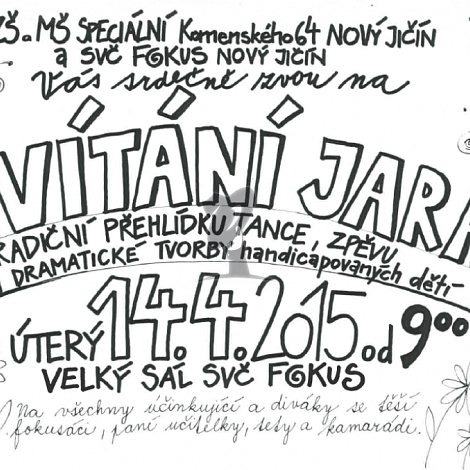 ZŠ a MŠ SPECIÁLNÍ Komenského 64 NOVÝ JIČÍN
a SVČ FOKUS NOVÝ JIČÍN
Vás srdečně zvou na
VÍTÁNÍ JARA
TRADIČNÍ PŘEHLÍDKU TANCE, ZPĚVU
DRAMATICKÉ TVORBY handicapovaných dětí
ÚTERÝ 14.4.2015 od 9⁰⁰
VELKÝ SÁL SVČ FOKUS
Na všechny účinkující a diváky se těší
fokusáci, paní učitelky, tety a kamarádi.